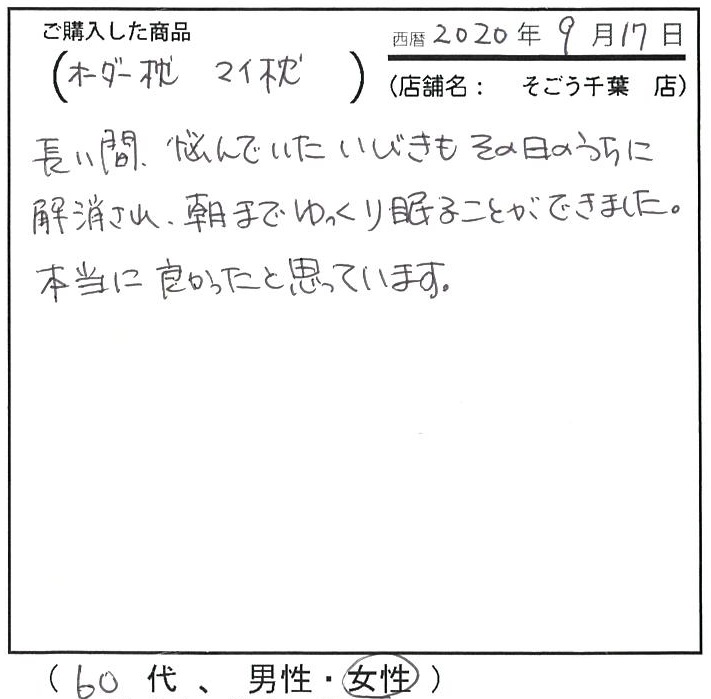 ご購入した商品
西暦 2020年 9月17日
(オーダー枕 マイ枕)
(店舗名： そごう千葉 店)
長い間、悩んでいたいびきもその日のうちに
解消され、朝までゆっくり眠ることができました。
本当に良かったと思っています。
(60代、男性・女性)